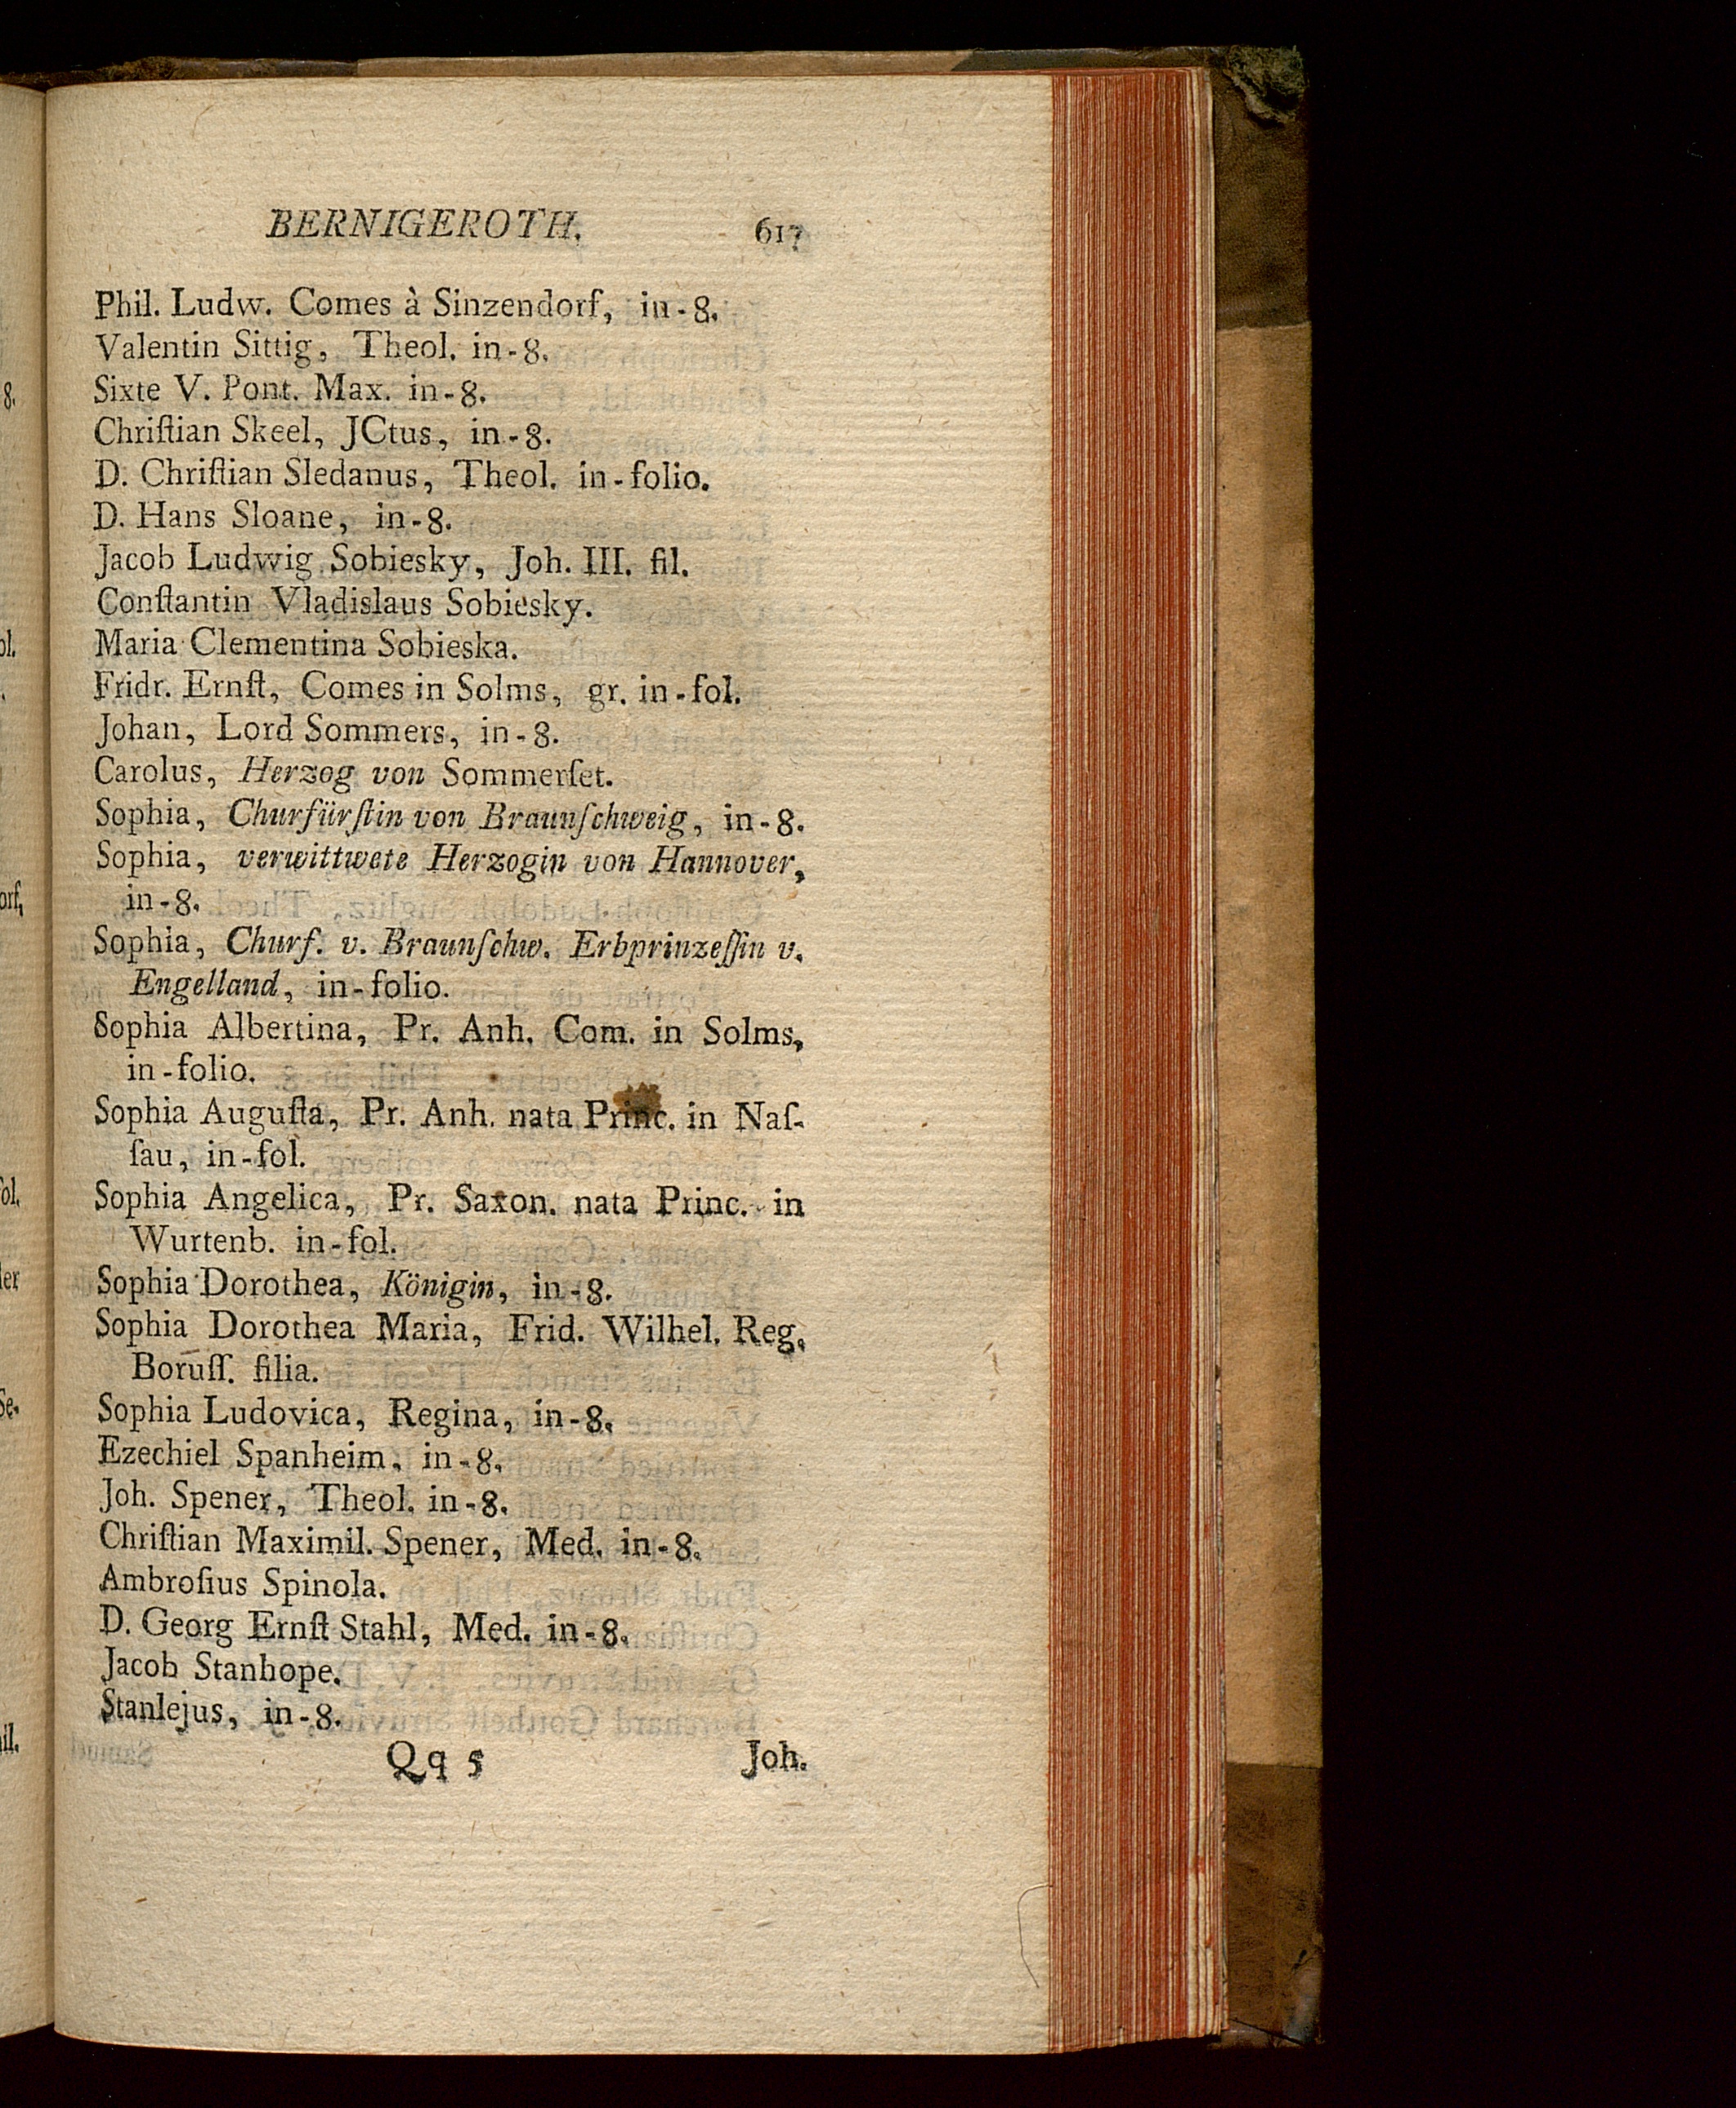 BERNIGEROTH. 617
Phil. Ludw. Comes à Sinzendorf, in-8.
Valentin Sittig, Theol. in-8.
Sixte V. Pont. Max. in-8.
Chriſtian Skeel, JCtus, in-8.
D. Chriſtian Sledanus, Theol. in-folio.
D. Hans Sloane, in-8.
Jacob Ludwig Sobiesky, Joh. III. fil.
Conſtantin Vladislaus Sobiesky.
Maria Clementina Sobieska.
Fridr. Ernſt, Comes in Solms, gr. in-fol.
Johan, Lord Sommers, in-8.
Carolus, Herzog von Sommerſet.
Sophia, Churfürſtin von Braunſchweig, in-8.
Sophia, verwittwete Herzogin von Hannover,
in-8.
Sophia, Churf. v. Braunſchw. Erbprinzeſſin v.
Engelland, in-folio.
Sophia Albertina, Pr. Anh. Com. in Solms,
in-folio.
Sophia Auguſta, Pr. Anh. nata Princ. in Naſ-
ſau, in-fol.
Sophia Angelica, Pr. Saxon. nata Princ. in
Wurtenb. in-fol.
Sophia Dorothea, Königin, in-8.
Sophia Dorothea Maria, Frid. Wilhel. Reg.
Boruſſ. filia.
Sophia Ludovica, Regina, in-8.
Ezechiel Spanheim, in-8.
Joh. Spener, Theol. in-8.
Chriſtian Maximil. Spener, Med. in-8.
Ambroſius Spinola.
D. Georg Ernſt Stahl, Med. in-8.
Jacob Stanhope.
Stanlejus, in-8.
Qq 5 Joh.